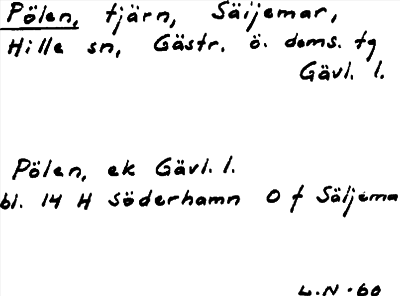 Pölen, tjärn, Säijemar,
Hille sn, Gästr. ö. doms. tg
Gävl. l.
Pölen, ek Gävl. l.
bl. 14 H Söderhamn 0 f Säljema
L.N. 60